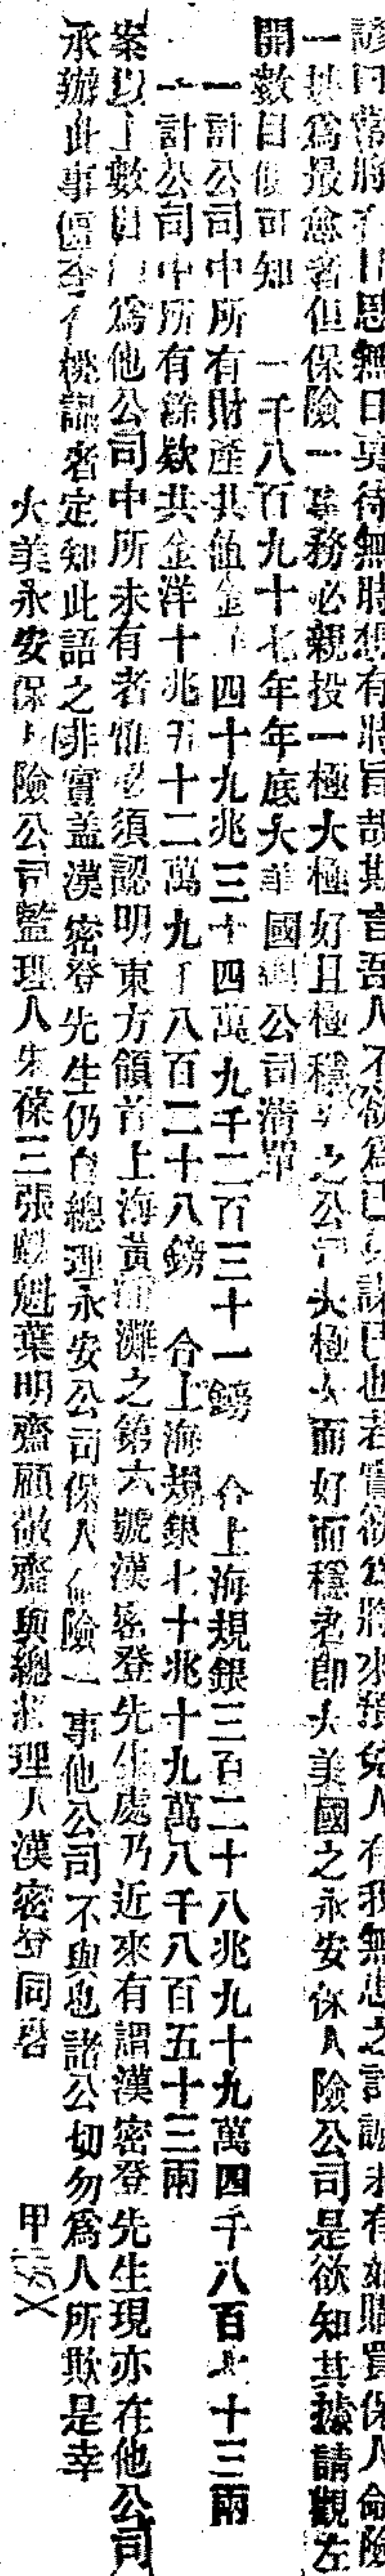 諺曰常將有日思無日莫待無時想有時旨哉斯言吾人不欲為已身謀已也若實欲為將來預免人有我無悲之計誠未有如購買保人命險
一扶為最愈者但保險一事務必親投一極大極好且極穩之公司夫極大而好而穩者即大美國之永安保人險公司是欲知其據請觀左
開數目便可知　一千八百九十七年年底大美國公司清單
一計公司中所有財產共值金　四十九兆三十四萬九千二百三十一鎊　合上海規銀三百二十八兆九十九萬四千八百七十三兩
一計公司中所有餘欵共金洋十兆五十二萬九千八百二十八鎊　合上海規銀七十兆十九萬八千八百五十三兩
案以上數目　為他公司中所未有者惟必須認明東方領首上海黃浦灘之第六號漢密登先生處乃近來有謂漢密登先生現亦在他公司
承辦此事儘至有挑謊者定知此語之非實蓋漢密登先生仍自總理永安公司保人命險一事他公司不與也諸公切勿為人所欺是幸
大美永安保人險公司監理人朱葆三張麟魁葉明齋顧敬齋與總經理人漢密登同啓　甲